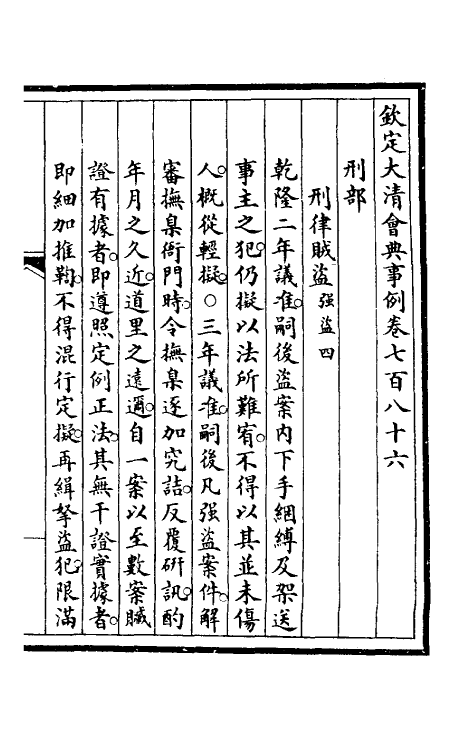 欽定大清會典事例卷七百八十六
刑部
刑律賊盜强盜四
乾隆二年議准。嗣後盜案內下手綑縛及架送
事主之犯。仍擬以法所難宥。不得以其並未傷
人。概從輕擬。○三年議准。嗣後凡强盜案件。解
審撫臬衙門時。令撫臬逐加究詰。反覆研訊。酌
年月之久近。道里之遠邇。自一案以至數案贓
證有據者。即遵照定例正法。其無干證實據者。
即細加推鞫。不得混行定擬。再緝拏盜犯。限滿